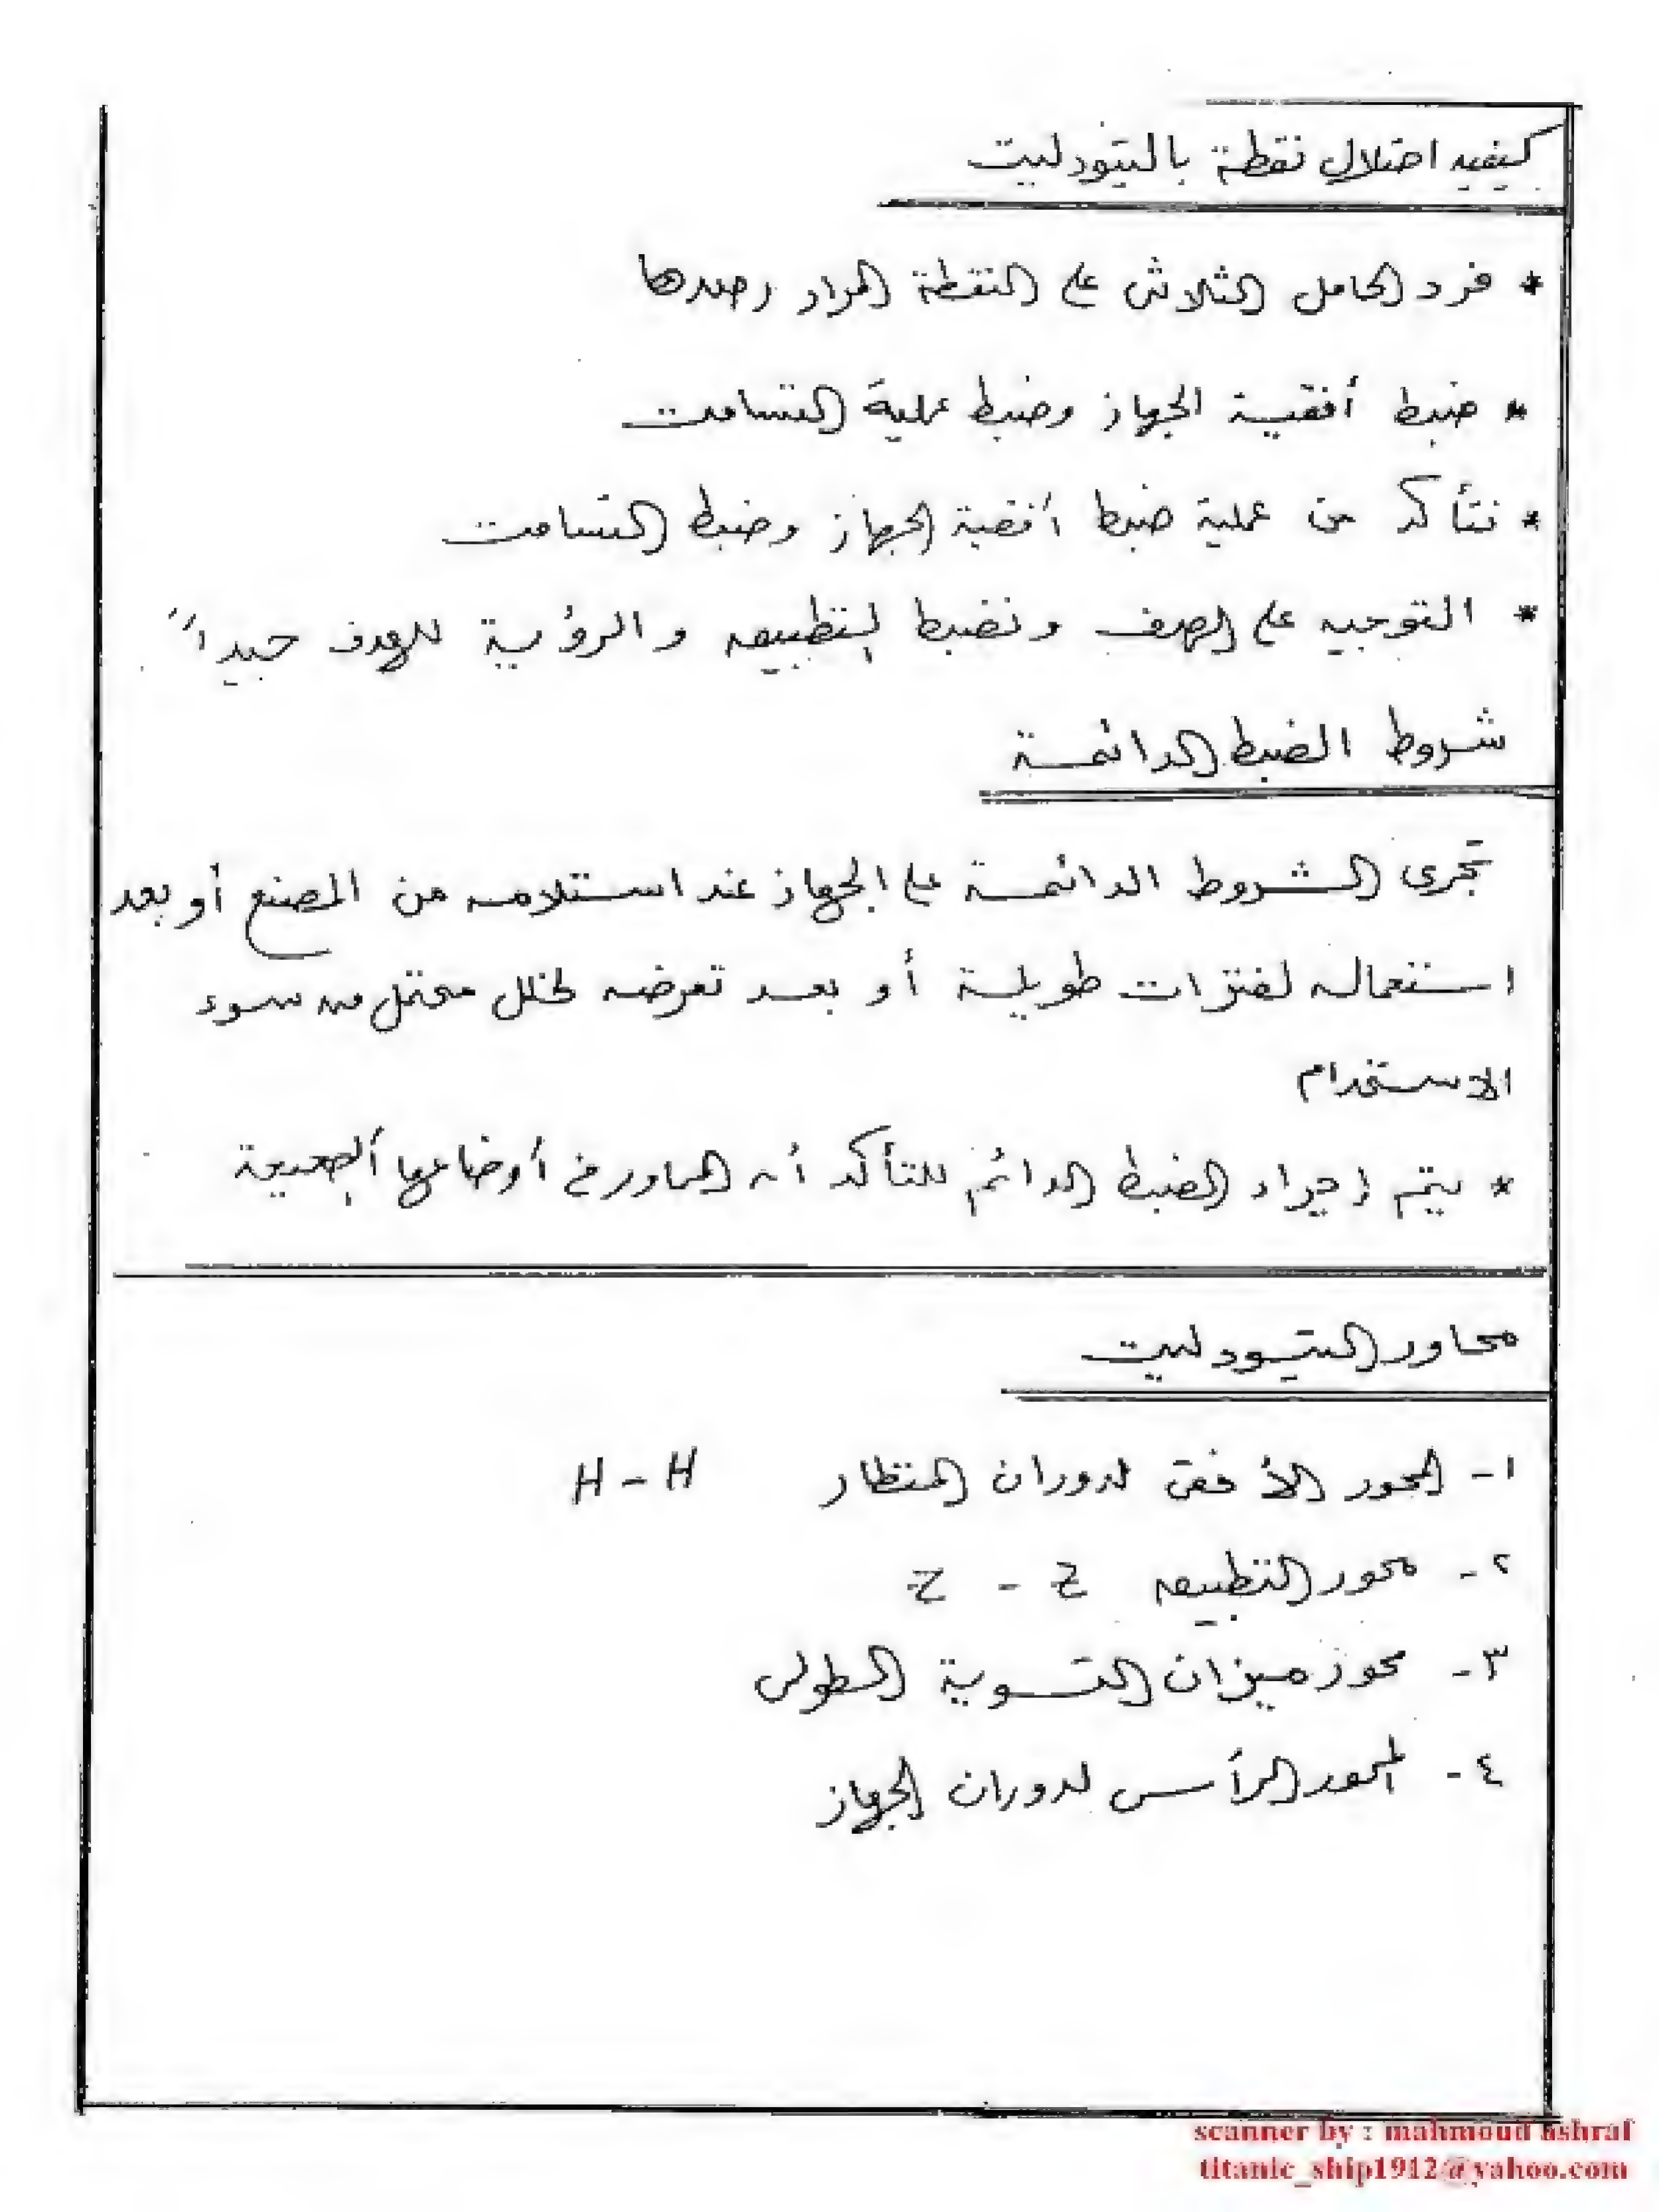 كيفيه احتلال نقطة بالتيودليت
* فرد الحامل الثلاثى على النقطة المراد رصدها
* ضبط أفقية الجهاز وضبط عملية التسامت
* نتأكد من عملية ضبط أفقية الجهاز وضبط التسامت
* التوجيه على الهدف ونضبط التطبيق والرؤية للهدف جيداً
شروط الضبط الدائمة
تجرى الشروط الدائمة على الجهاز عند استلامه من المصنع أو بعد
استعماله لفترات طويلة أو بعد تعرضه لخلل محتمل من سوء
الاستخدام
* يتم إجراء الضبط الدائم للتأكد أن المحاور فى أوضاعها الصحيحة
محاور التيودليت
١- المحور الأفقى لدوران المنظار H - H
٢- محور التطبيق Z - Z
٣- محور ميزان التسوية الطولى
٤- المحور الرأسى لدوران الجهاز
scanner by : mahmoud ashraf
titanic_ship1912@yahoo.com